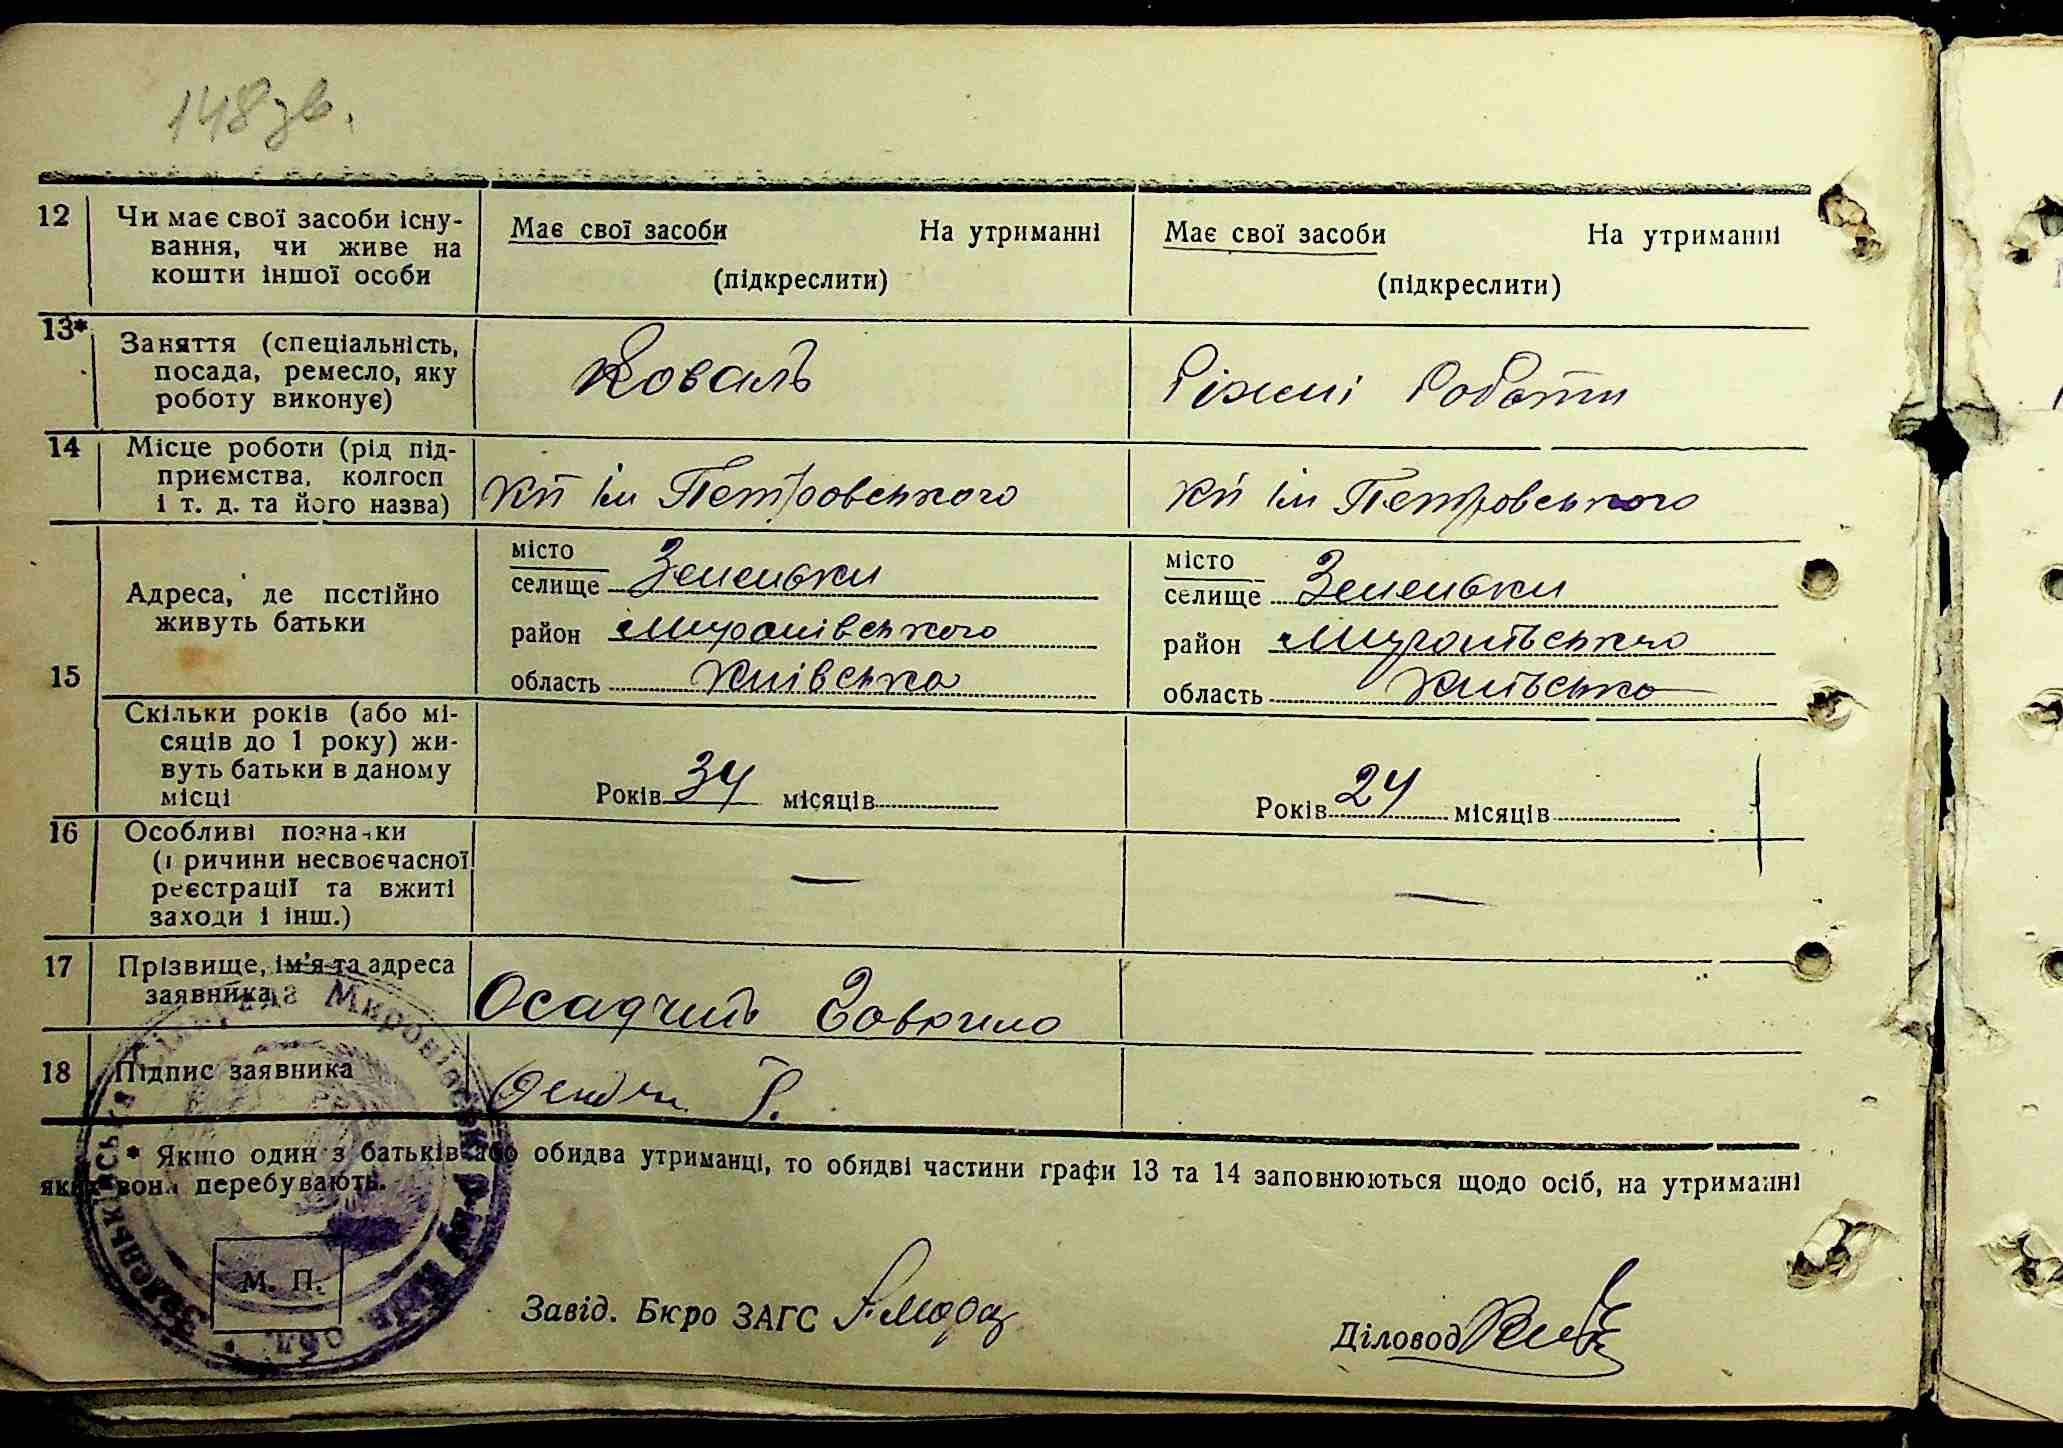 148 зв.
12 Чи має свої засоби існу-
вання, чи живе на
кошти іншої особи
Має свої засоби На утриманні
(підкреслити)
Має свої засоби На утриманні
(підкреслити)
13* Заняття (спеціальність,
посада, ремесло, яку
роботу виконує)
Коваль
Ріжні роботи
14 Місце роботи (рід під-
приємства, колгосп
і т. д. та його назва)
кп ім Петровського
кп ім Петровського
15 Адреса, де постійно
живуть батьки
місто
селище Зеленьки
район Миронівського
область Київська
місто
селище Зеленьки
район Миронівського
область Київська
Скільки років (або мі-
сяців до 1 року) жи-
вуть батьки в даному
місці
Років 34 місяців
Років 24 місяців
16 Особливі позначки
(причини несвоєчасної
реєстрації та вжиті
заходи і інш.)
—
—
17 Прізвище, ім'я та адреса
заявника
Осадчий Гаврило
18 Підпис заявника
* Якщо один з батьків або обидва утриманці, то обидві частини графи 13 та 14 заповнюються щодо осіб, на утриманні
яких вони перебувають.
М. П.
Завід. Бюро ЗАГС
Діловод